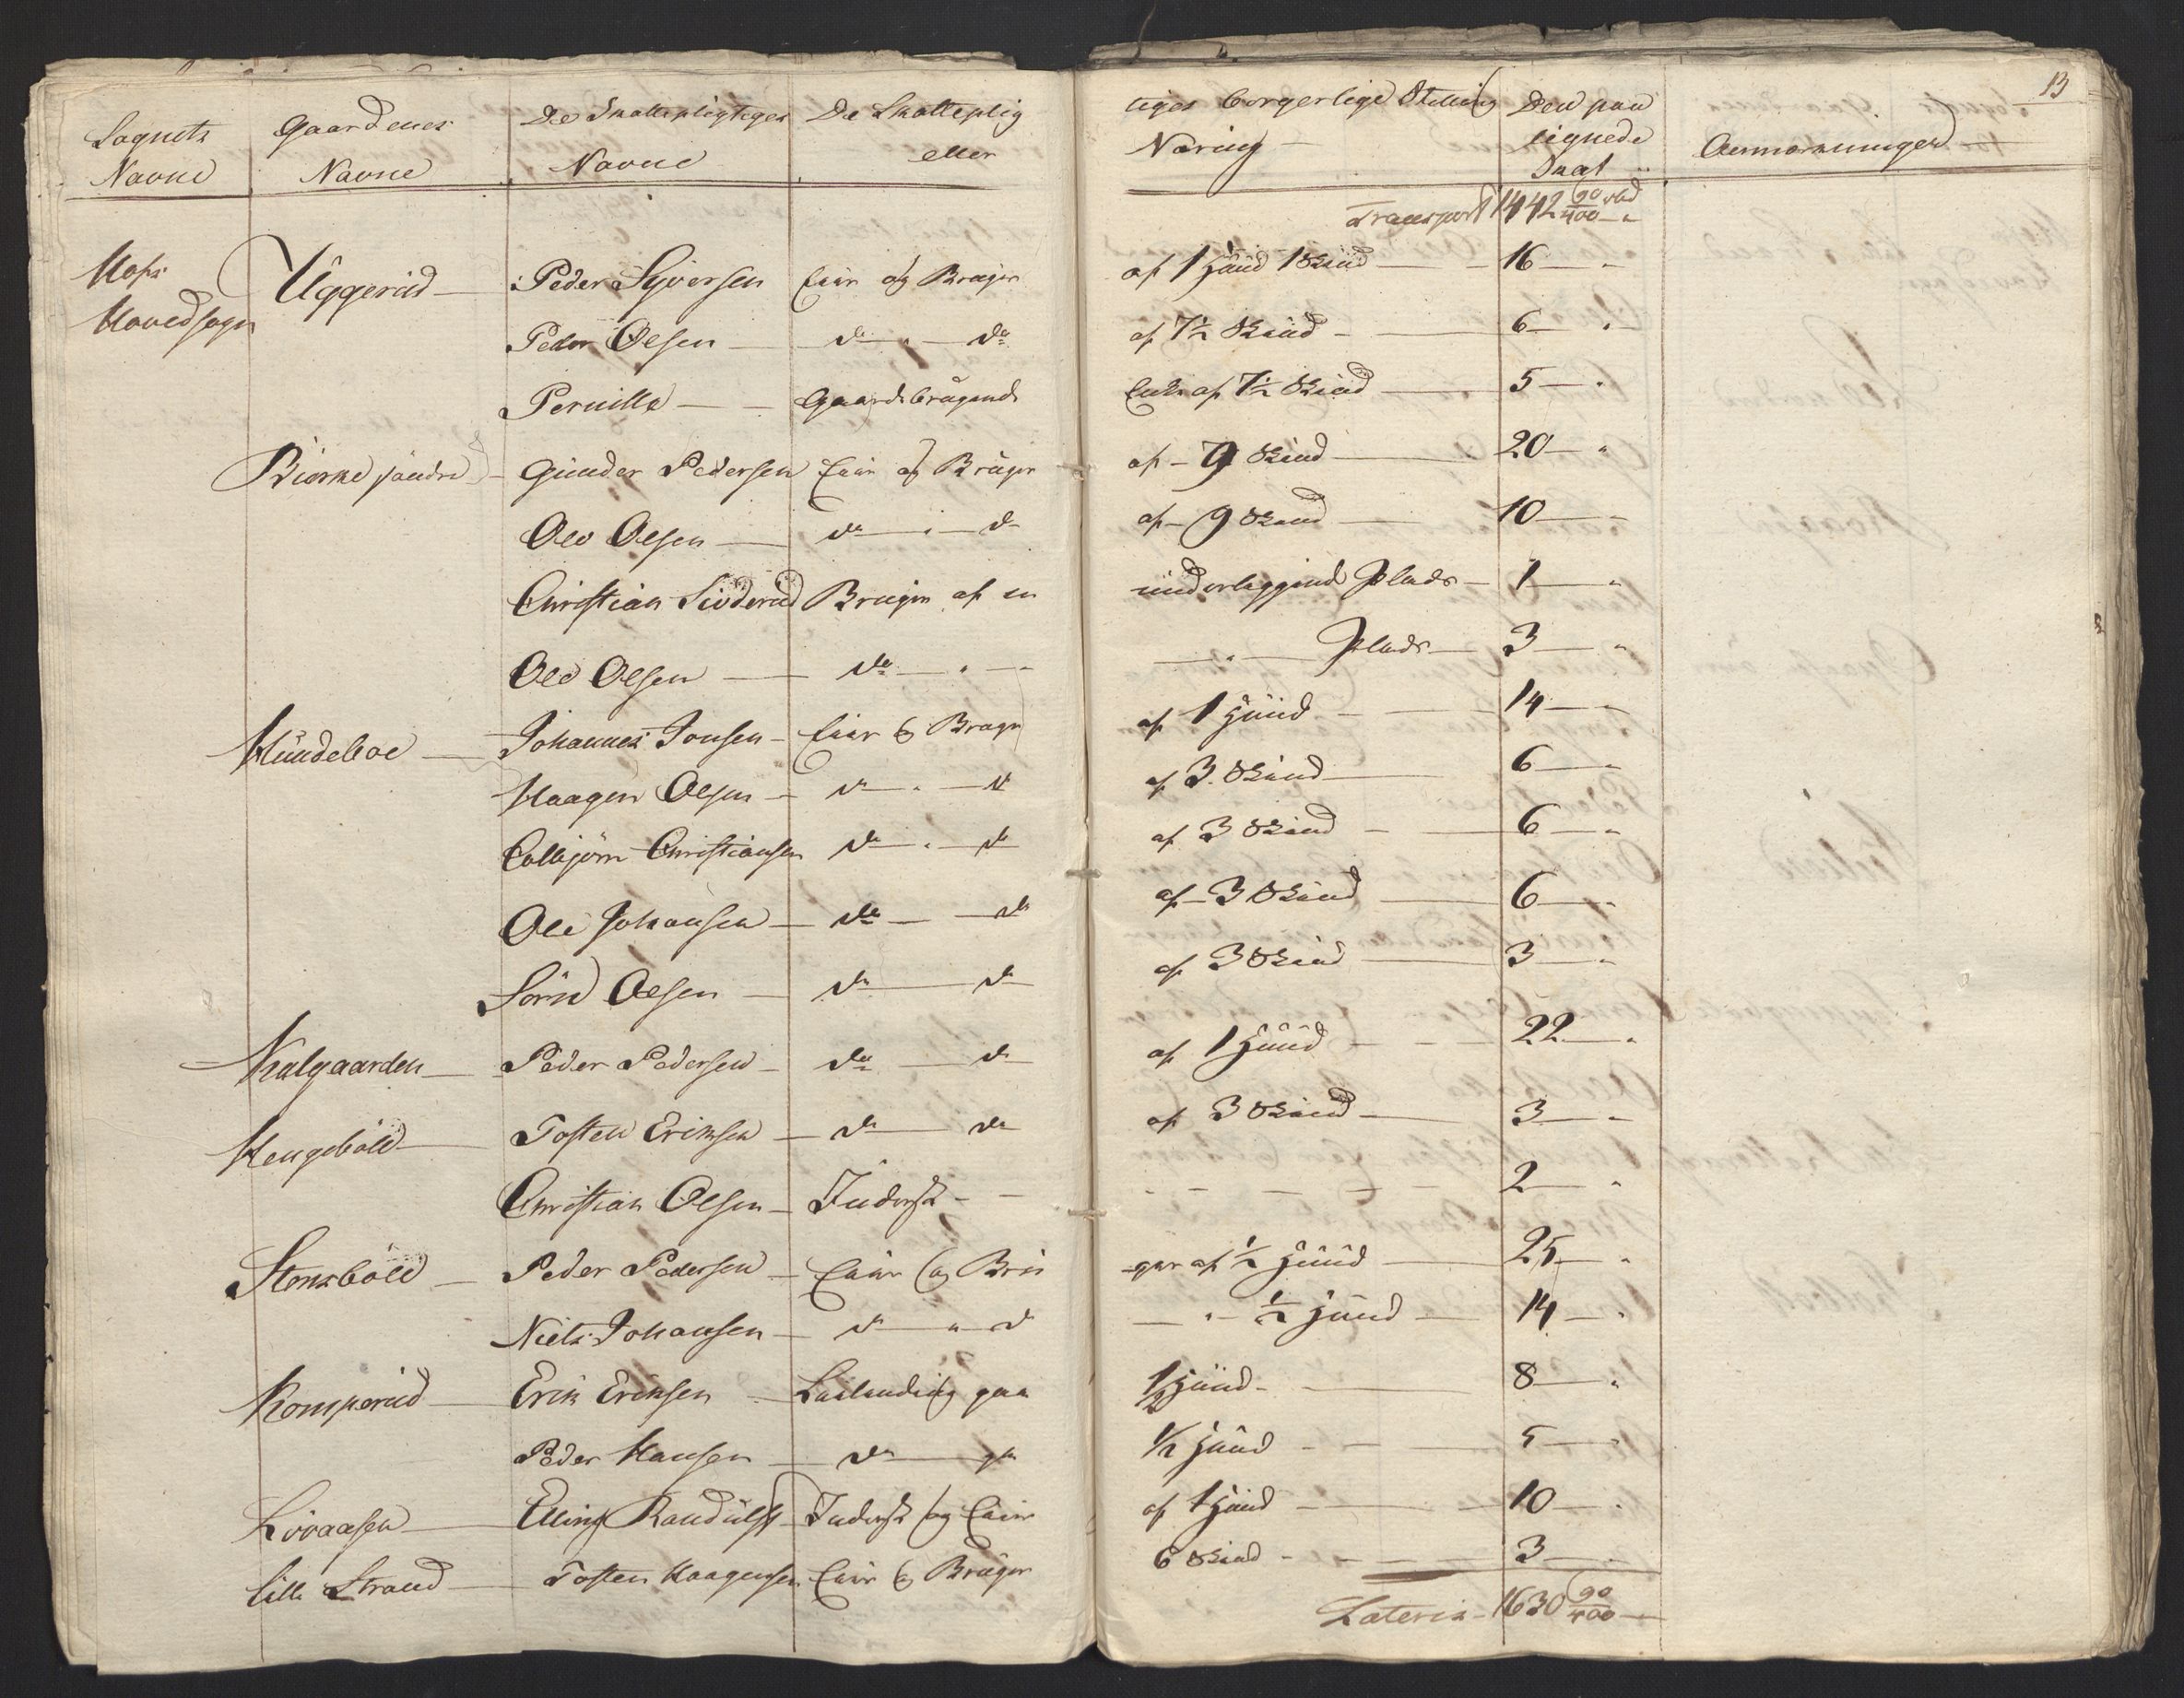 13
Sognets Navne | Gaardenes Navne | De Skattepligtiges Navne | De Skatteplig eller | tiges borgerlige Stilling Næring | Den paa lignede Skat | Anmærkninger
Transport 1442 90/400 rbd
Hofs Hovedsogn | Üggerüd | Peder Syversen | Eier og Brüger | af 1 Hüüd 1 Skind | 16
Peder Olsen | do do | af 7½ Skind | 6
Pernille | Gaardbrügende | Enke af 7½ Skind | 5
Biörke söndre | Günder Pedersen | Eier og Brüger | af 9 Skind | 20
Ole Olsen | do do | af 9 Skind | 10
Christian Süderüd | Brüger af en | ünderliggende Plads | 1
Ole Olsen | do | Plads | 3
Hündeboe | Johannes Jonsen | Eier og Brüger | af 1 Hüüd | 14
Haagen Olsen | do do | af 3 Skind | 6
Colbjörn Christiansen | do do | af 3 Skind | 6
Ole Johansen | do do | af 3 Skind | 6
Sörn Olsen | do do | af 3 Skind | 3
Kalgaarden | Peder Pedersen | do do | af 1 Hüüd | 22
Hengeböle | Tosten Eriksen | do do | af 3 Skind | 3
Christian Olsen | Inderst | 2
Stensböle | Peder Pedersen | Eier og Brü | ger af ½ Hüüd | 25
Niels Johansen | do do | ½ Hüüd | 14
Komperüd | Erik Eriksen | Leilending paa | ½ Hüüd | 8
Peder Hansen | do paa | ½ Hüüd | 5
Lövaasen | Elling Randülfs | Inderst og Eier | af 1 Hüüd | 10
lille Strand | Tosten Haagensen | Eier og Brüger | 6 Skind | 3
Lateris 1630 90/400